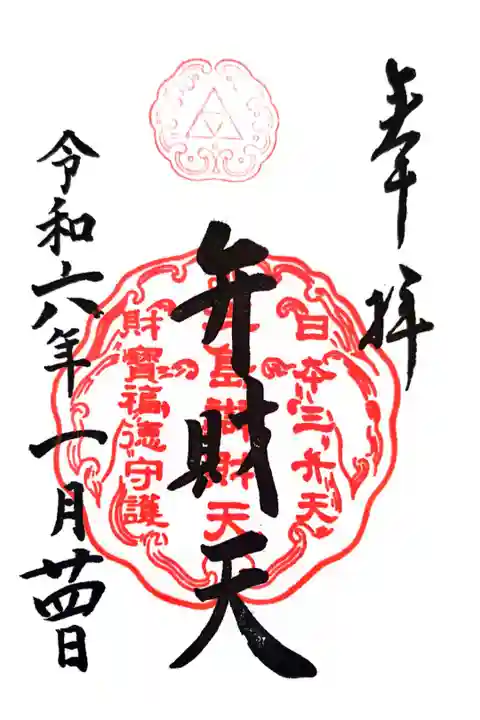 奉拝
日本三弁天
弁財天
島辨財天
財寳福德守護
令和六年一月廿四日